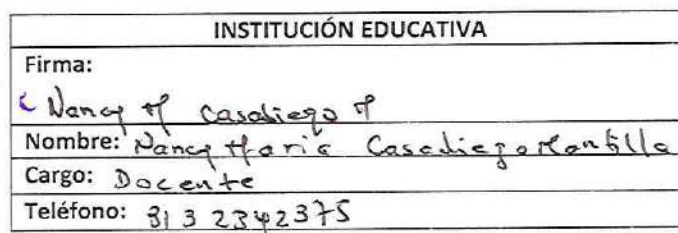 INSTITUCIÓN EDUCATIVA
Firma:
Nancy M Casadiego M
Nombre: Nancy Maria Casadiego Mantilla
Cargo: Docente
Teléfono: 313 2342375